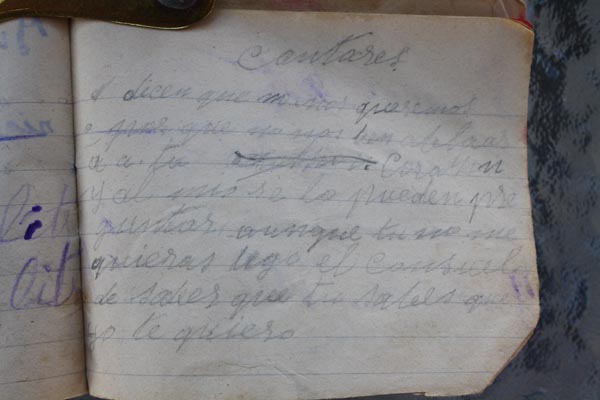 Cantares
dicen que no nos queremos
por que no nos ven ablaar
a tu corazon
y al mio se lo pueden pre
guntar, aunque tu no me
quieras tego el consuel
de saber que tu sabes que
yo te quiero